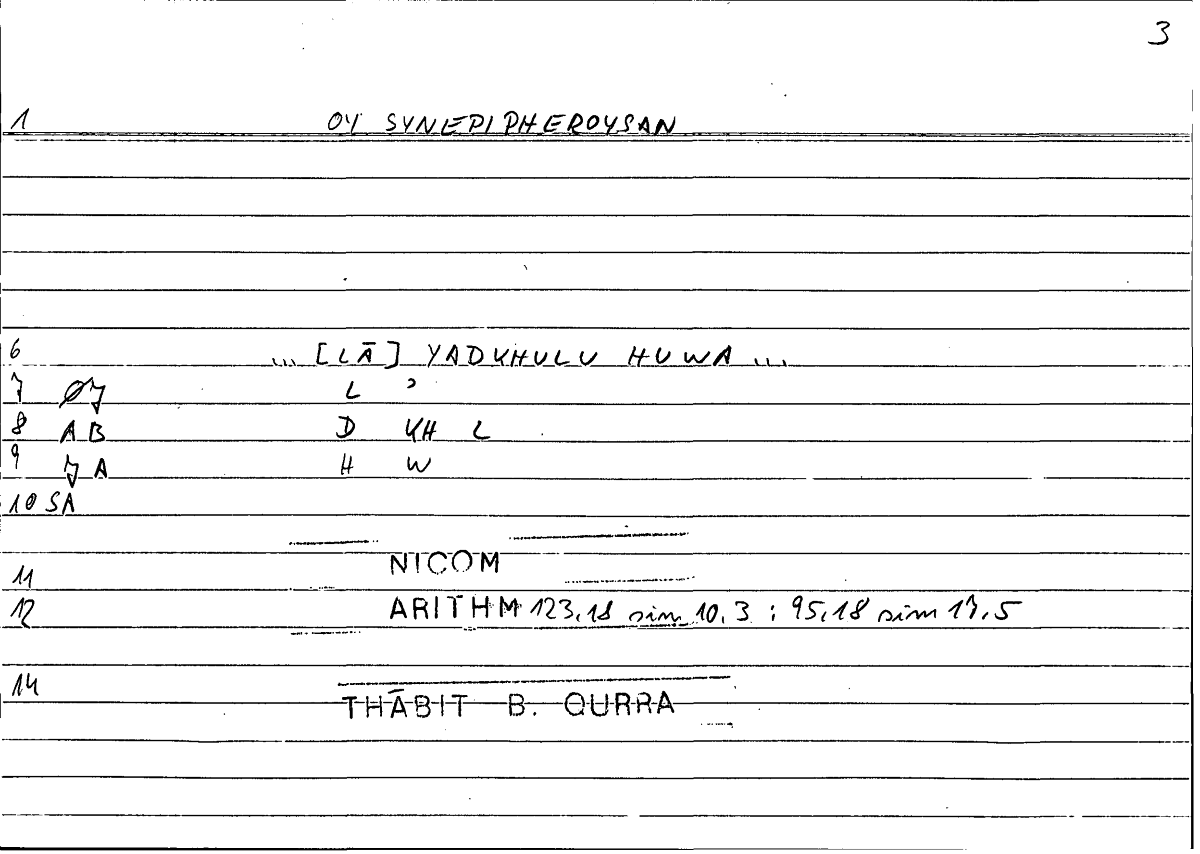 3
1 OY SYNEPIPHEROYSAN
6 ... [LĀ] YADKHULU HUWA ...
7 Ø7 L ʾ
8 AB D KH L
9 7A H W
10 SA
11 NICOM
12 ARITHM 123,18 sim 10,3 ; 95,18 sim 17,5
14 THĀBIT B. QURRA